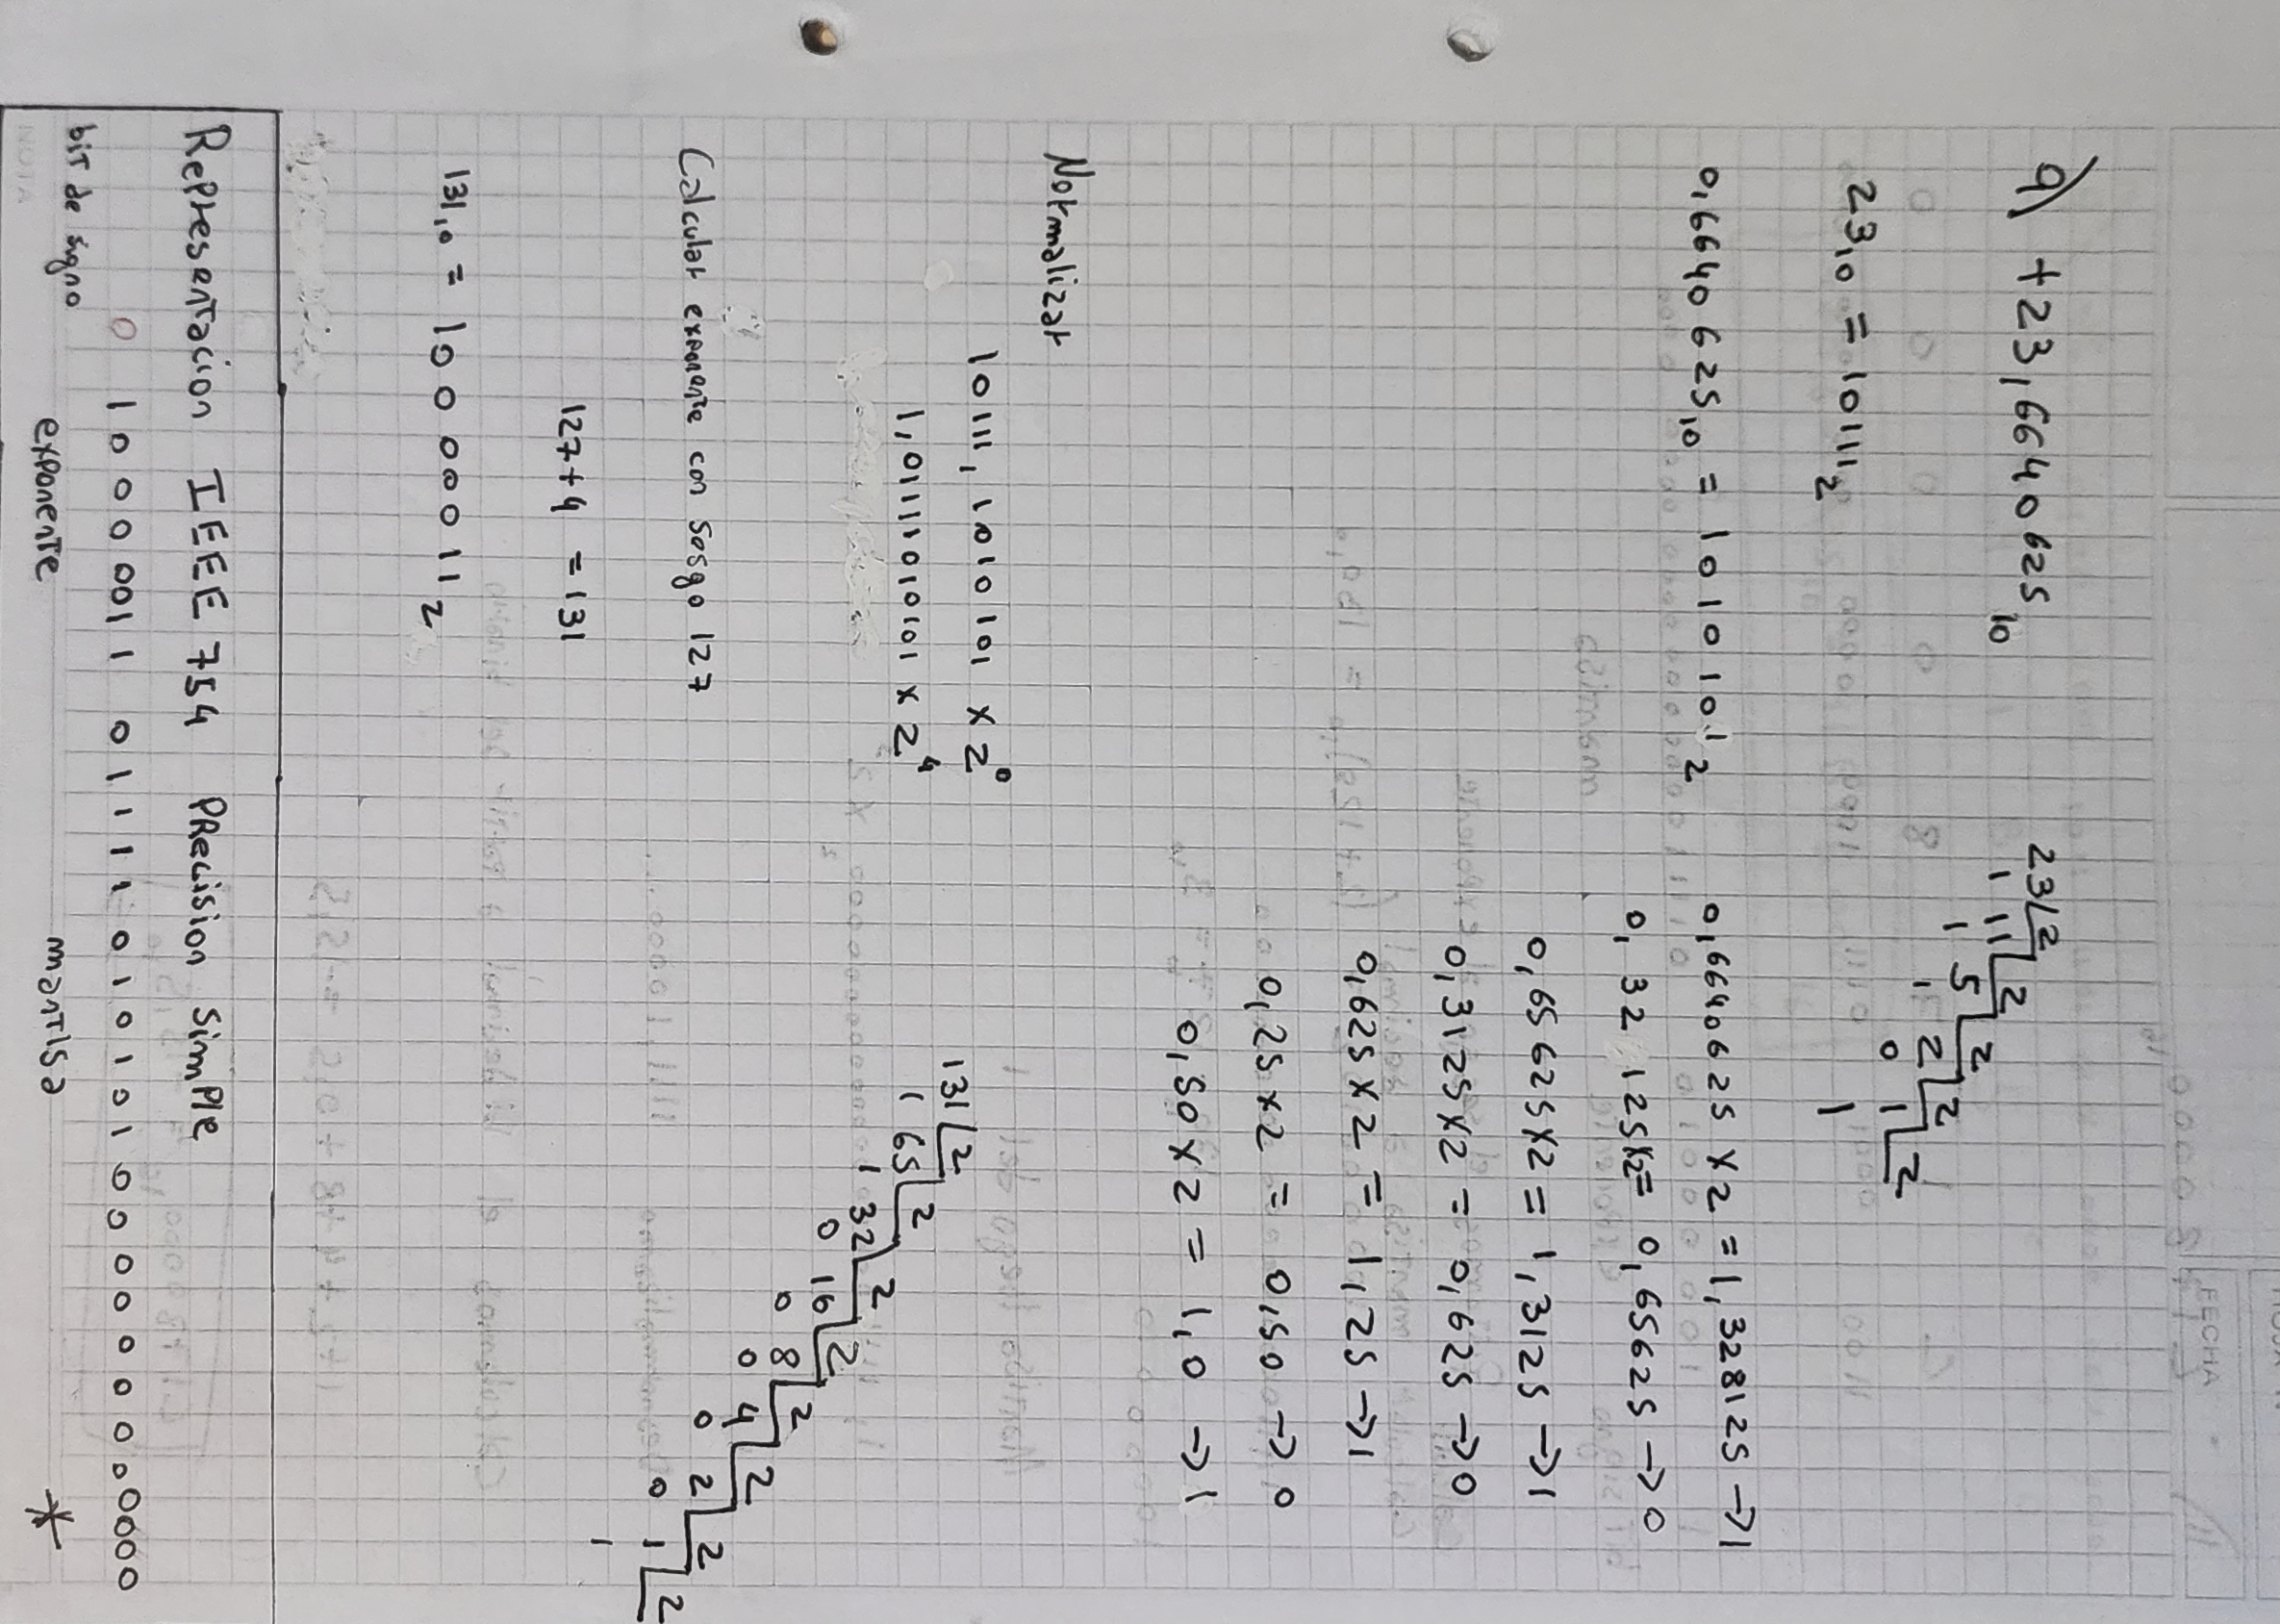 HOJA N°
FECHA
9) +23,6640625₁₀
23 2
1 11 2
1 5 2
1 2 2
0 1 2
1
23₁₀ = 10111₂
0,6640625₁₀ = 1010101₂
0,6640625 x 2 = 1,328125 → 1
0,32 125x2= 0,65625 → 0
0,65625x2 = 1,3125 → 1
0,3125x2 = 0,625 → 0
0,625x2 = 1,25 → 1
0,25x2 = 0,50 → 0
0,50x2 = 1,0 → 1
Normalizar
10111,1010101 x 2⁰
1,01111010101 x 2⁴
131 2
1 65 2
1 32 2
0 16 2
0 8 2
0 4 2
0 2 2
0 1 2
1
Calcular exponente con sesgo 127
127+4 = 131
131₁₀ = 10000011₂
Representacion IEEE 754 Precision simple
0 10000011 01111010101000000000000
bit de signo exponente mantisa *